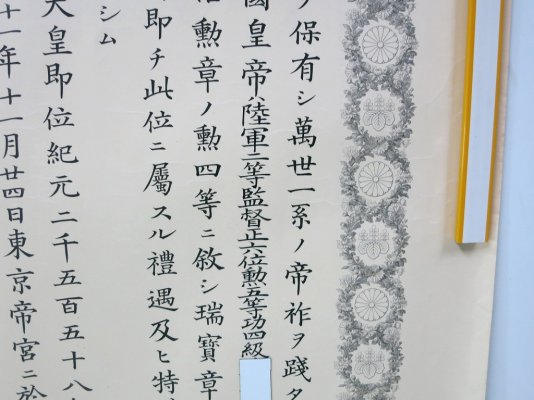 ノ保有シ萬世一系ノ帝祚ヲ踐タ
國皇帝ハ陸軍二等監督正六位勲五等功四級
治勲章ノ勲四等ニ敘シ瑞寶章
即チ此位ニ屬スル禮遇及ヒ特
シム
天皇即位紀元二千五百五十八
十一年十一月廿四日東京帝宮ニ於